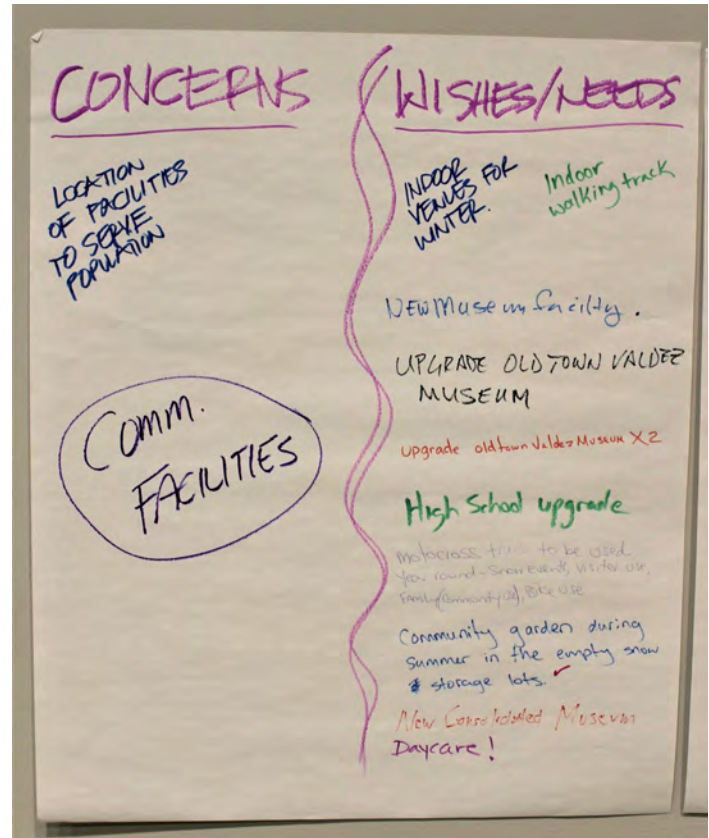 CONCERNS
LOCATION
OF FACILITIES
TO SERVE
POPULATION
Comm.
FACILITIES
WISHES/NEEDS
INDOOR
VENUES FOR
WINTER.
Indoor
walking track
NEW Museum facilty.
UPGRADE OLD TOWN VALDEZ
MUSEUM
upgrade old town Valdez Museum X2
High School upgrade
motocross to be used
year round - snow events, visitor use,
Family/Community use, Bike use
Community garden during
summer in the empty snow
storage lots.
New Consolidated Museum
Daycare!